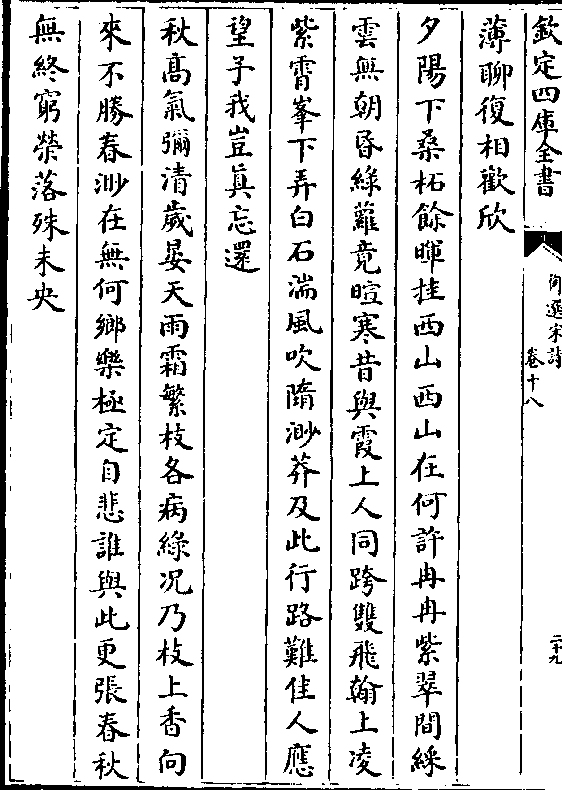 欽定四庫全書
御選宋詩
卷十八
二十九
薄聊復相歡欣
夕陽下桑柘餘暉挂西山西山在何許冉冉紫翠間綵
雲無朝昏綠蘿竟暄寒昔與霞上人同跨雙飛翰上凌
紫霄峯下弄白石湍風吹隋渺莽及此行路難佳人應
望予我豈真忘還
秋高氣彌清歲晏天雨霜繁枝各病綠况乃枝上香向
來不勝春渺在無何鄉樂極定自悲誰與此更張春秋
無終窮榮落殊未央